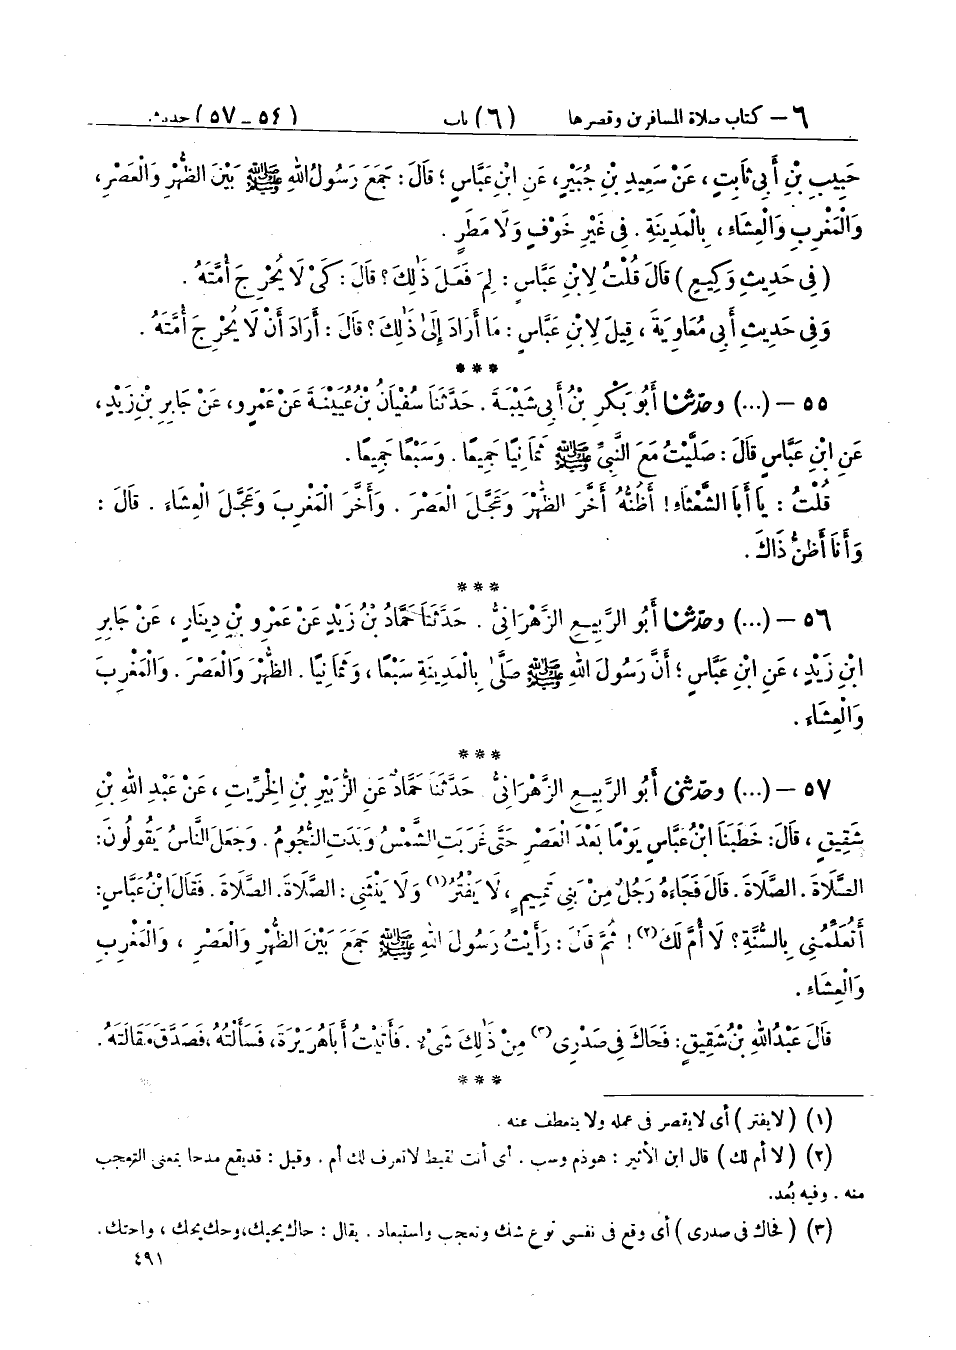 ٦ – كتاب صلاة المسافرين وقصرها (٦) باب (٥٤ – ٥٧) حديث
حَبِيبِ بْنِ أَبِي ثَابِتٍ، عَنْ سَعِيدِ بْنِ جُبَيْرٍ، عَنِ ابْنِ عَبَّاسٍ؛ قَالَ: جَمَعَ رَسُولُ اللهِ ﷺ بَيْنَ الظُّهْرِ وَالْعَصْرِ،
وَالْمَغْرِبِ وَالْعِشَاءِ، بِالْمَدِينَةِ. فِي غَيْرِ خَوْفٍ وَلَا مَطَرٍ.
(فِي حَدِيثِ وَكِيعٍ) قَالَ قُلْتُ لِابْنِ عَبَّاسٍ: لِمَ فَعَلَ ذَٰلِكَ؟ قَالَ: كَيْ لَا يُحْرِجَ أُمَّتَهُ.
وَفِي حَدِيثِ أَبِي مُعَاوِيَةَ، قِيلَ لِابْنِ عَبَّاسٍ: مَا أَرَادَ إِلَىٰ ذَٰلِكَ؟ قَالَ: أَرَادَ أَنْ لَا يُحْرِجَ أُمَّتَهُ.
***
٥٥ – (...) وحَدَّثَنَا أَبُو بَكْرِ بْنُ أَبِي شَيْبَةَ. حَدَّثَنَا سُفْيَانُ بْنُ عُيَيْنَةَ عَنْ عَمْرٍو، عَنْ جَابِرِ بْنِ زَيْدٍ،
عَنِ ابْنِ عَبَّاسٍ قَالَ: صَلَّيْتُ مَعَ النَّبِيِّ ﷺ ثَمَانِيًا جَمِيعًا. وَسَبْعًا جَمِيعًا.
قُلْتُ: يَا أَبَا الشَّعْثَاءِ! أَظُنُّهُ أَخَّرَ الظُّهْرَ وَعَجَّلَ الْعَصْرَ. وَأَخَّرَ الْمَغْرِبَ وَعَجَّلَ الْعِشَاءَ. قَالَ:
وَأَنَا أَظُنُّ ذَاكَ.
***
٥٦ – (...) وحَدَّثَنَا أَبُو الرَّبِيعِ الزَّهْرَانِيُّ. حَدَّثَنَا حَمَّادُ بْنُ زَيْدٍ عَنْ عَمْرِو بْنِ دِينَارٍ، عَنْ جَابِرِ
ابْنِ زَيْدٍ، عَنِ ابْنِ عَبَّاسٍ؛ أَنَّ رَسُولَ اللهِ ﷺ صَلَّىٰ بِالْمَدِينَةِ سَبْعًا، وَثَمَانِيًا. الظُّهْرَ وَالْعَصْرَ. وَالْمَغْرِبَ
وَالْعِشَاءَ.
***
٥٧ – (...) وحَدَّثَنِي أَبُو الرَّبِيعِ الزَّهْرَانِيُّ. حَدَّثَنَا حَمَّادٌ عَنِ الزُّبَيْرِ بْنِ الْخِرِّيتِ، عَنْ عَبْدِ اللهِ بْنِ
شَقِيقٍ، قَالَ: خَطَبَنَا ابْنُ عَبَّاسٍ يَوْمًا بَعْدَ الْعَصْرِ حَتَّى غَرَبَتِ الشَّمْسُ وَبَدَتِ النُّجُومُ. وَجَعَلَ النَّاسُ يَقُولُونَ:
الصَّلَاةَ. الصَّلَاةَ. قَالَ فَجَاءَهُ رَجُلٌ مِنْ بَنِي تَمِيمٍ، لَا يَفْتُرُ(١) وَلَا يَنْثَنِي: الصَّلَاةَ. الصَّلَاةَ. فَقَالَ ابْنُ عَبَّاسٍ:
أَتُعَلِّمُنِي بِالسُّنَّةِ؟ لَا أُمَّ لَكَ(٢)! ثُمَّ قَالَ: رَأَيْتُ رَسُولَ اللهِ ﷺ جَمَعَ بَيْنَ الظُّهْرِ وَالْعَصْرِ، وَالْمَغْرِبِ
وَالْعِشَاءِ.
قَالَ عَبْدُ اللهِ بْنُ شَقِيقٍ: فَحَاكَ فِي صَدْرِي(٣) مِنْ ذَٰلِكَ شَيْءٌ. فَأَتَيْتُ أَبَا هُرَيْرَةَ، فَسَأَلْتُهُ، فَصَدَّقَ مَقَالَتَهُ.
***
(١) (لا يفتر) أى لا يقصر فى عمله ولا ينعطف عنه.
(٢) (لا أم لك) قال ابن الأثير: هو ذم وسب. أى أنت لقيط لا تعرف لك أم. وقيل: قد يقع مدحا بمعنى التعجب
منه. وفيه بُعد.
(٣) (فحاك فى صدرى) أى وقع فى نفسى نوع شك وتعجب واستبعاد. يقال: حاك يحيك، وحك يحك، واحتك.
٤٩١